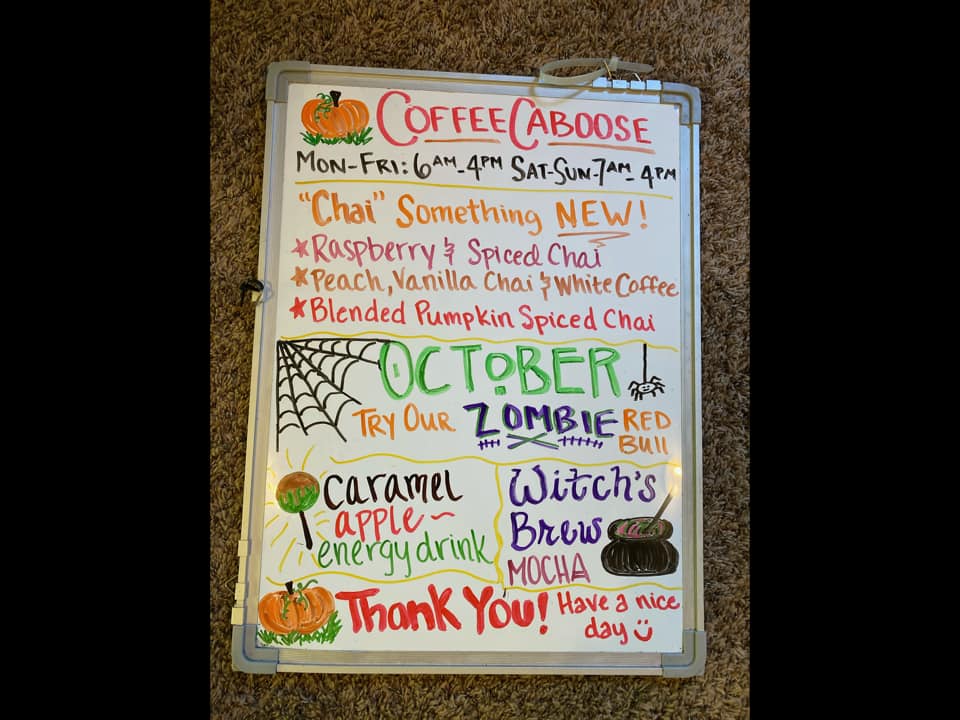 COFFEE CABOOSE
MON-FRI: 6AM-4PM SAT-SUN-7AM-4PM
"Chai" Something NEW!
*Raspberry & Spiced Chai
*Peach, Vanilla Chai & White Coffee
*Blended Pumpkin Spiced Chai
OCTOBER
TRY OUR ZOMBIE RED BULL
caramel
apple~
energy drink
Witch's
Brew
MOCHA
Thank You! Have a nice day